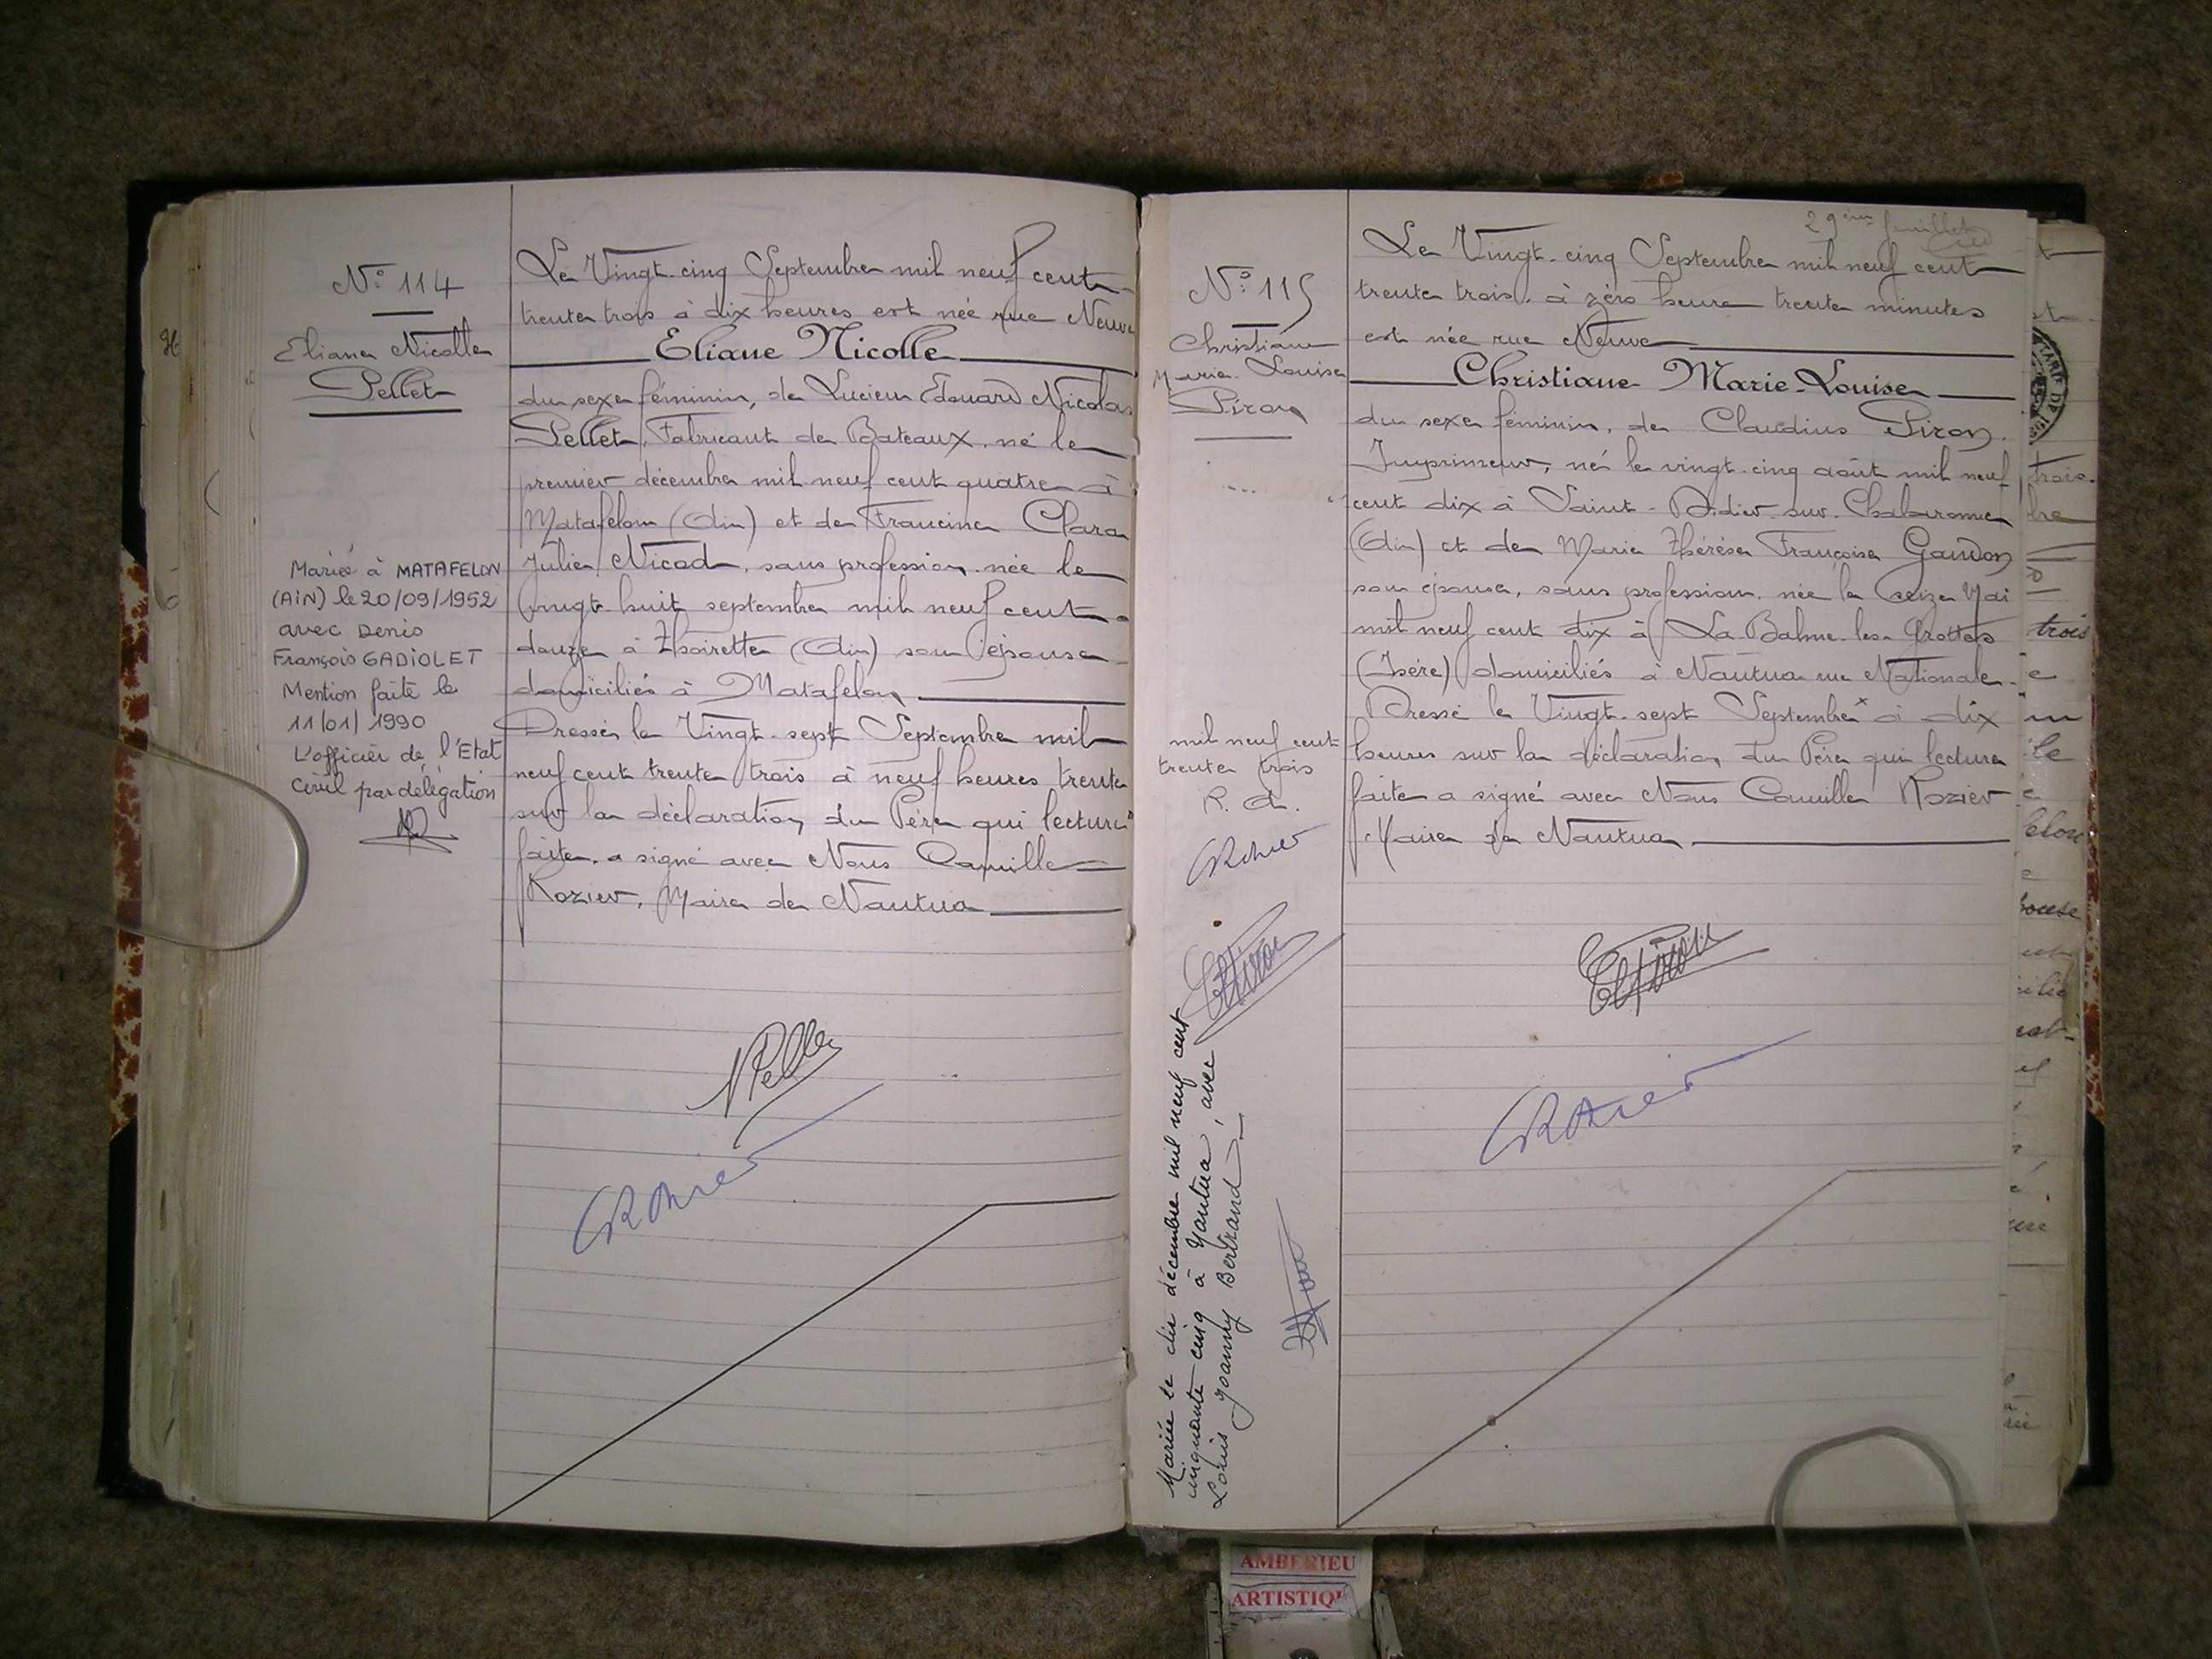 N° 114
Eliane Nicolle
Pellet
Mariée à MATAFELON
(AIN) le 20/09/1952
avec Denis
François GADIOLET
Mention faite le
11/01/1990
L'officier de l'Etat
Civil par délégation
Le Vingt-cinq Septembre mil neuf cent
trente trois à dix heures est née rue Neuve
Eliane Nicolle
du sexe féminin, de Lucien Edouard Nicolas
Pellet, Fabricant de Bateaux, né le
premier décembre mil neuf cent quatre à
Matafelon (Ain) et de Francine Clara
Julie Nicod, sans profession, née le
vingt-huit septembre mil neuf cent
douze à Thoirette (Ain) son épouse
domiciliés à Matafelon
Dressé le Vingt-sept Septembre mil
neuf cent trente trois à neuf heures trente
sur la déclaration du Père qui lecture
faite, a signé avec Nous Camille
Rozier, Maire de Nantua
NPellet
CRozier
29ème feuillet
N° 115
Christiane
Marie-Louise
Piron
mil neuf cent
trente trois
R. A.
CRozier
Cl Piron
Mariée le dix décembre mil neuf cent
cinquante-cinq à Nantua, avec
Louis Joanny Bertrand
Le Vingt-cinq Septembre mil neuf cent
trente trois, à zéro heure trente minutes
est née rue Neuve
Christiane Marie-Louise
du sexe féminin, de Claudius Piron,
Imprimeur, né le vingt-cinq août mil neuf
cent dix à Saint-Didier-sur-Chalaronne
(Ain) et de Marie Thérèse Françoise Gandon
son épouse, sans profession, née le seize Mai
mil neuf cent dix à La Balme-les-Grottes
(Isère) domiciliés à Nantua rue Nationale
Dressé le Vingt-sept Septembre x à dix
heures sur la déclaration du Père qui lecture
faite a signé avec Nous Camille Rozier
Maire de Nantua
Cl Piron
CRozier
trois
AMBERIEU
ARTISTIQU